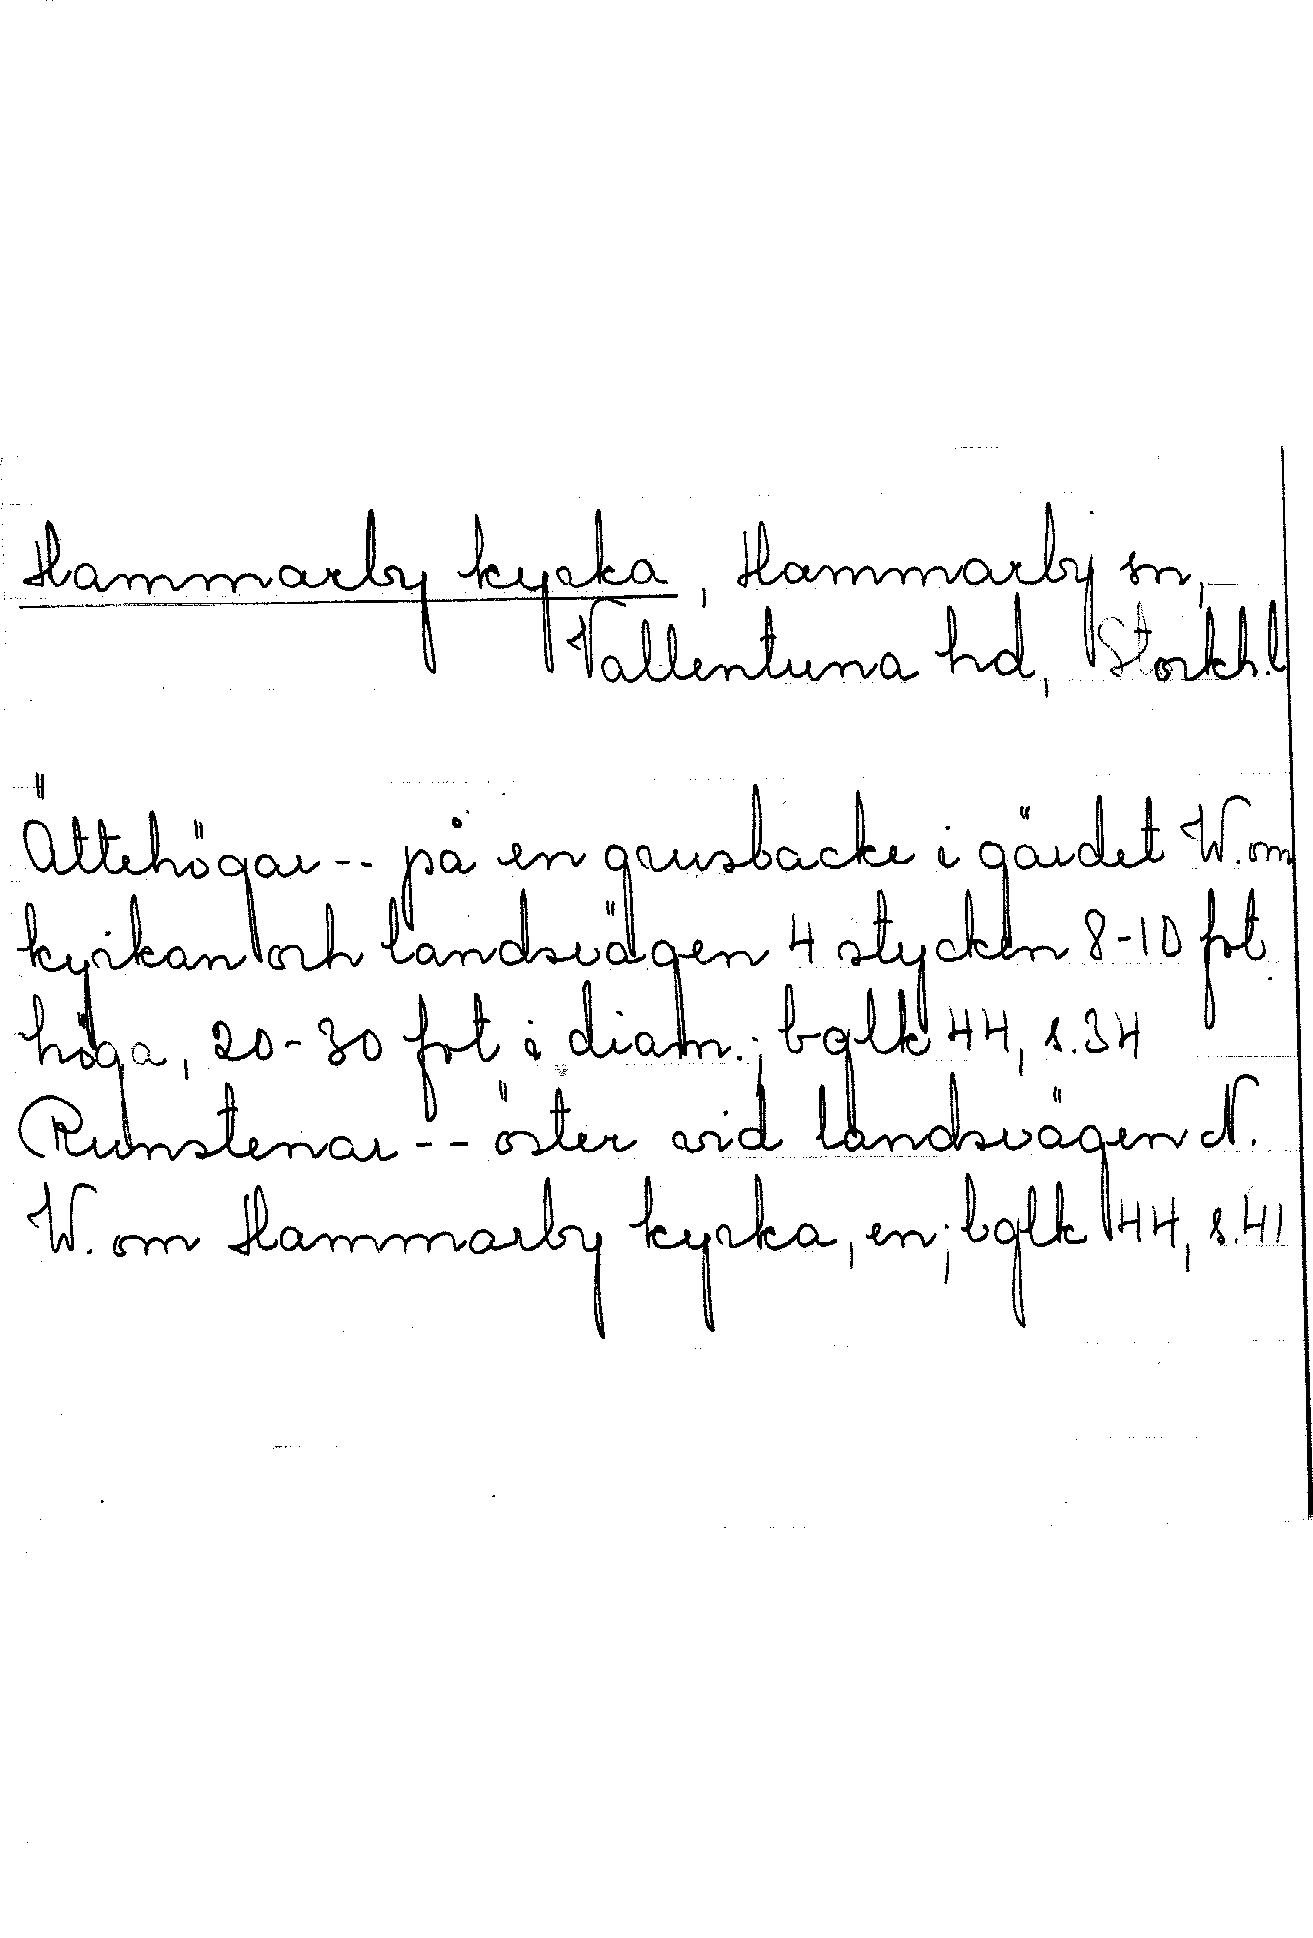 Hammarby kyrka, Hammarby sn,
Vallentuna hd, Stockh.l
Ättehögar -- på en grusbacke i gärdet W. om
kyrkan och landsvägen 4 stycken 8-10 fot
höga, 20-30 fot i diam.; bglk 44, s.34
Runstenar -- öster vid landsvägen N.
W. om Hammarby kyrka, en; bglk 44, s.41